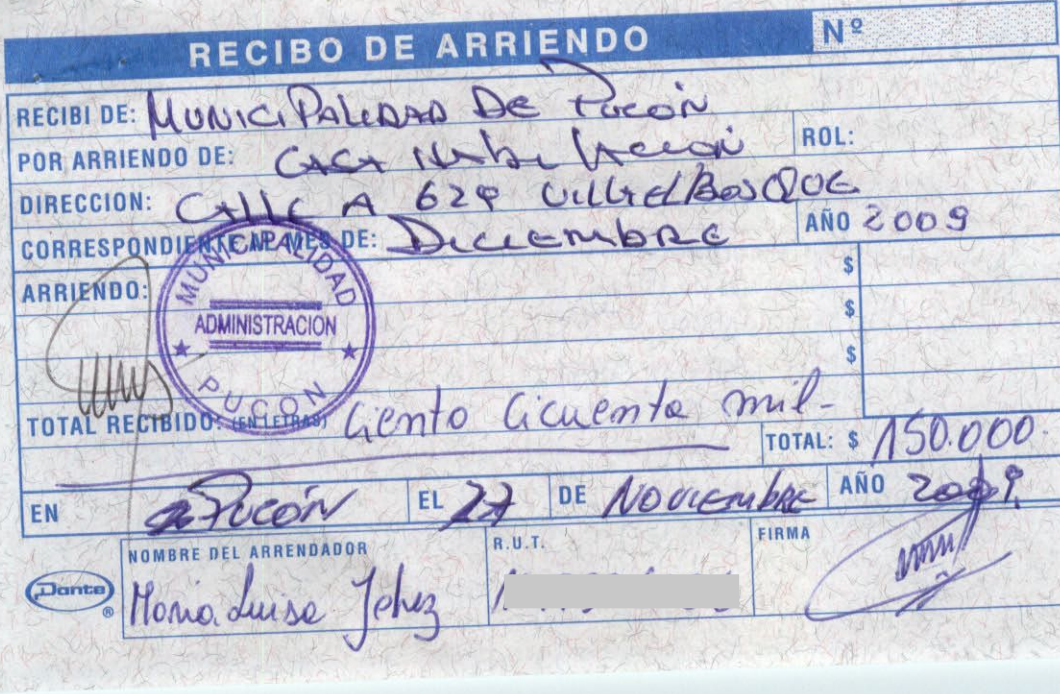 RECIBO DE ARRIENDO Nº
RECIBI DE: MUNICIPALIDAD DE PUCÓN
POR ARRIENDO DE: CASA ROL:
DIRECCION: CALLE A 629 VILLA EL BOSQUE
CORRESPONDIENTE AL MES DE: DICIEMBRE AÑO 2009
ARRIENDO: $
$
$
MUNICIPALIDAD
ADMINISTRACION
PUCON
TOTAL RECIBIDO: (EN LETRAS) Ciento Cicuenta mil-
TOTAL: $ 150.000.
EN PUCÓN EL 27 DE NOVIEMBRE AÑO 2009.
NOMBRE DEL ARRENDADOR R.U.T. FIRMA
Dante ®
Maria Luisa